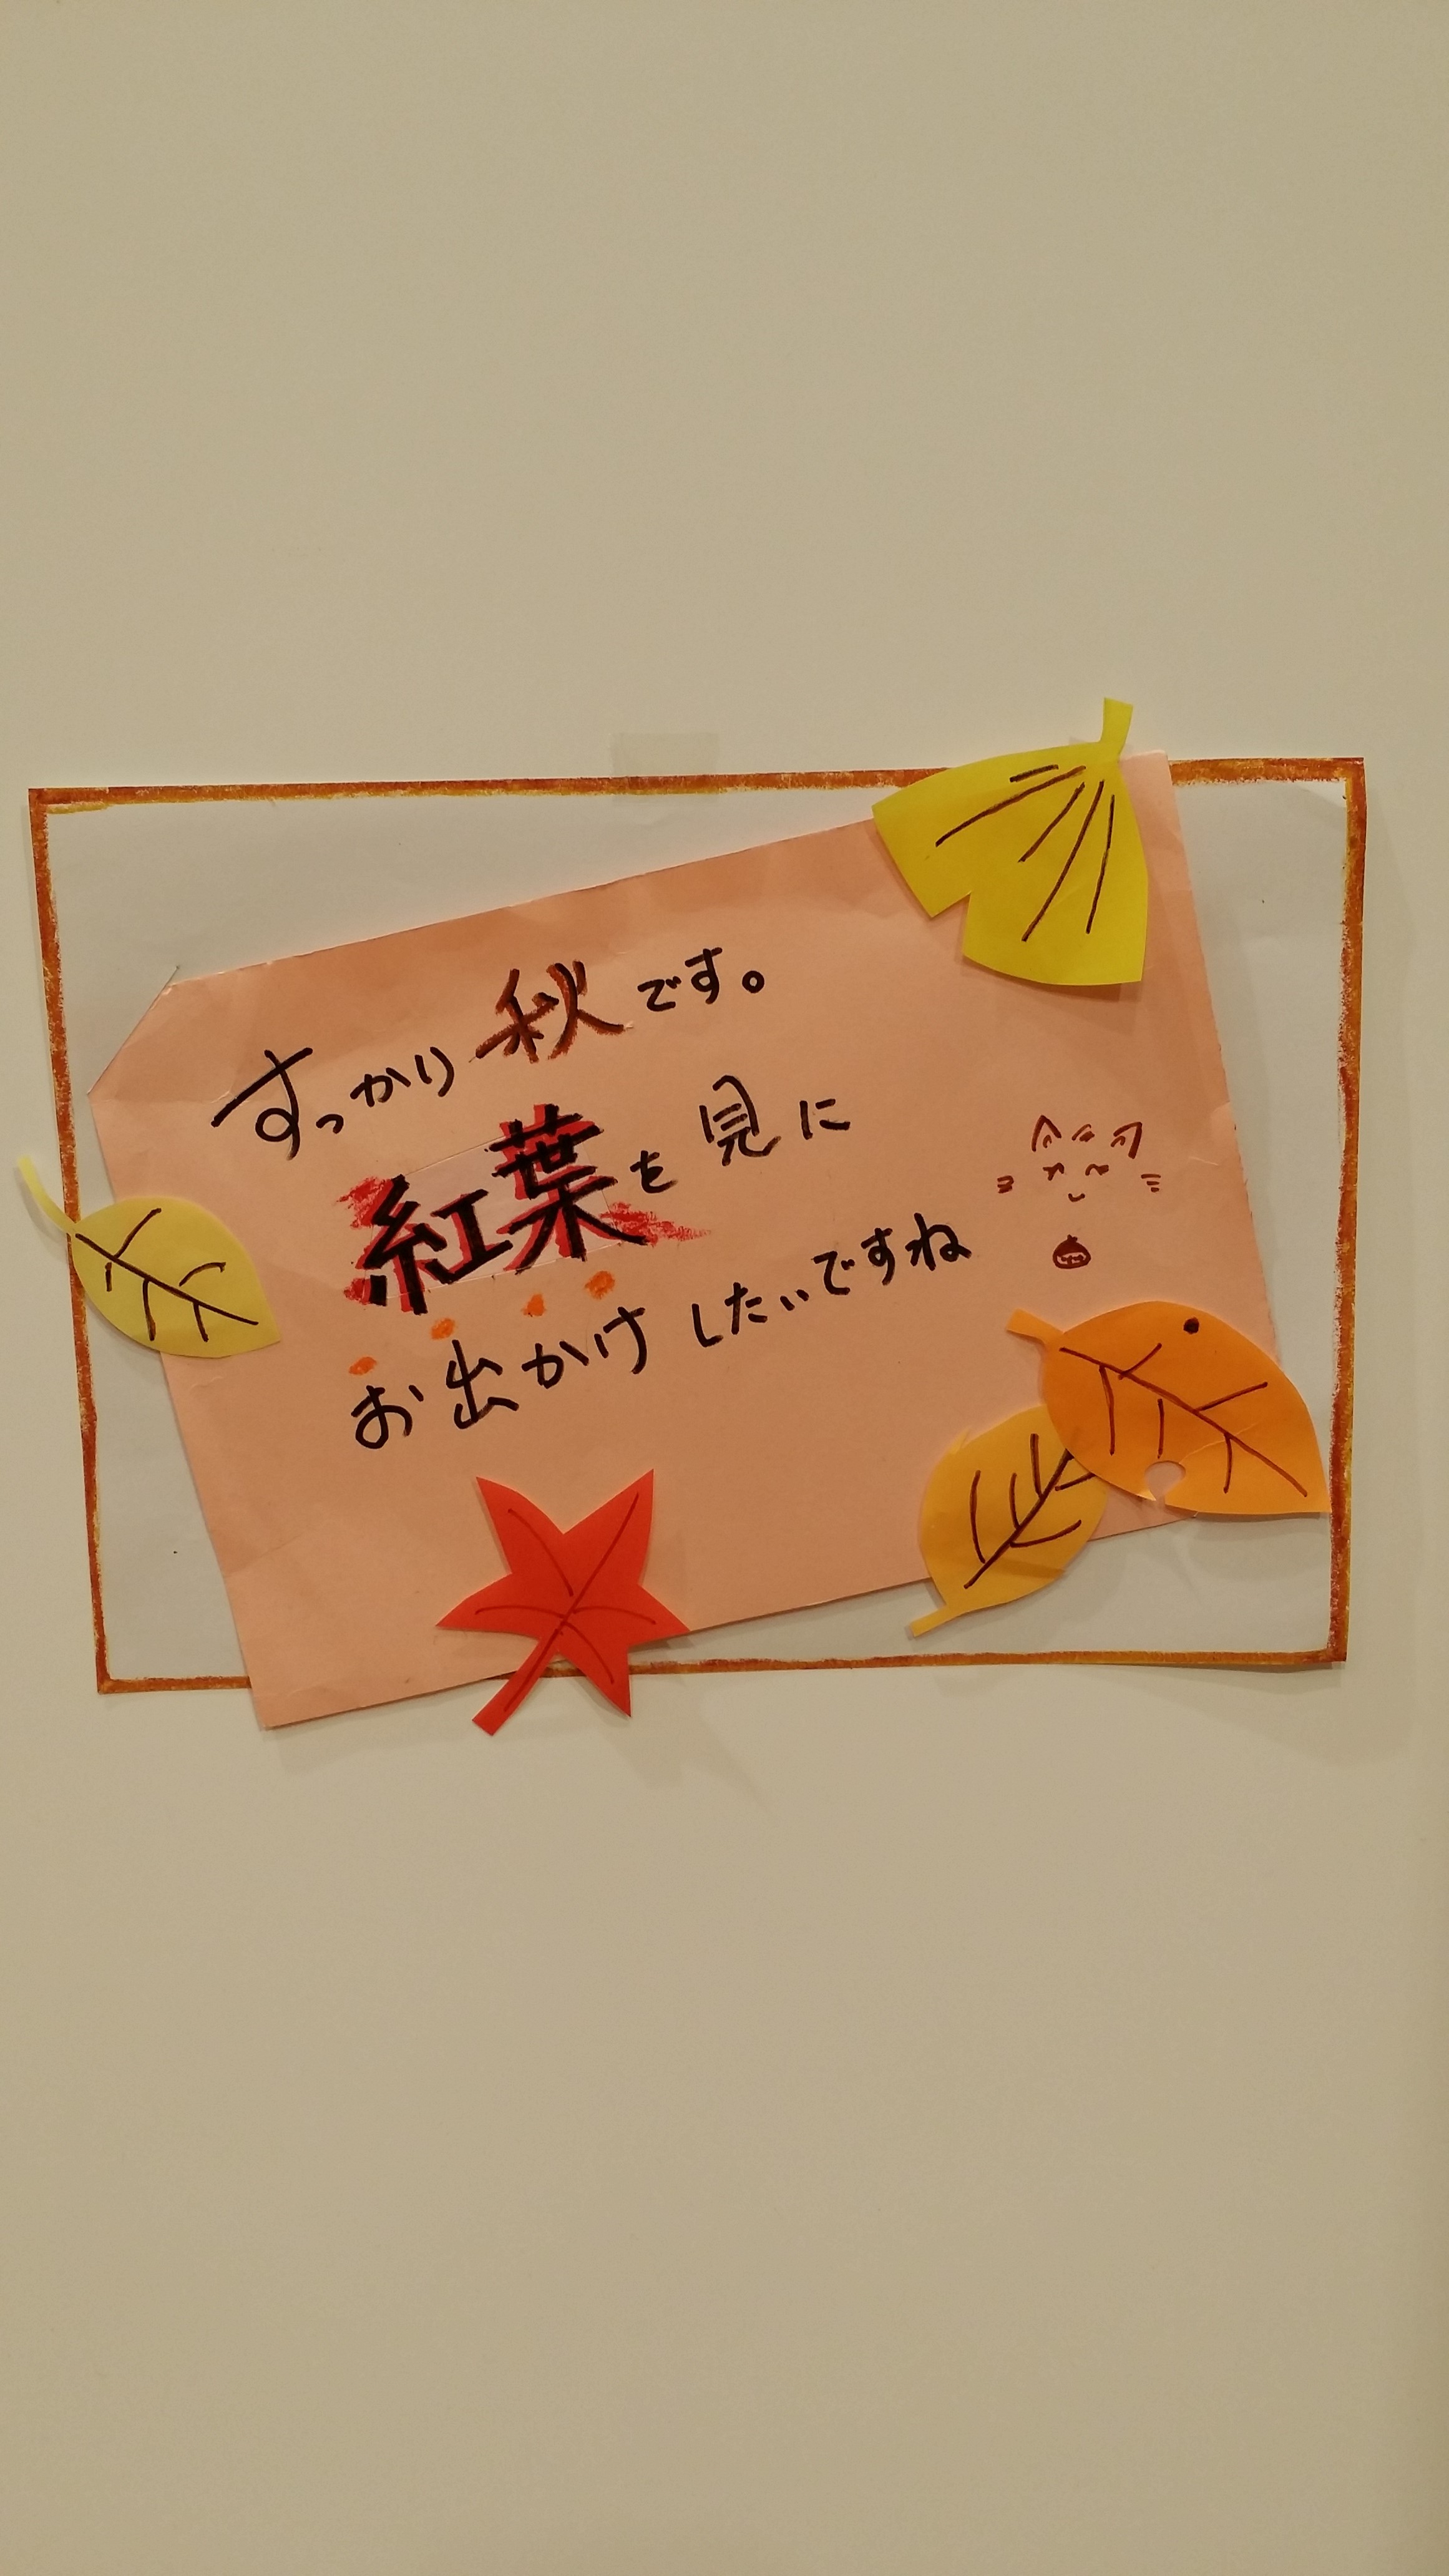 すっかり秋です。
紅葉を見に
お出かけしたいですね